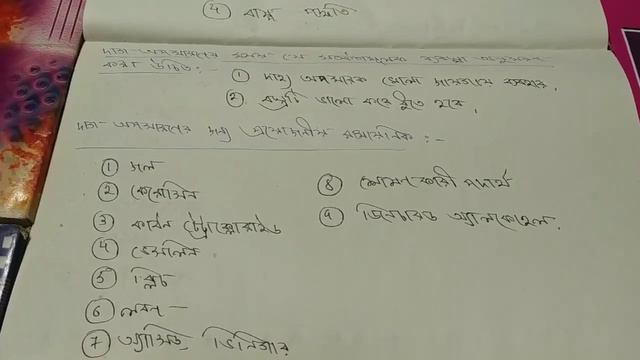 ④ বাষ্প পদ্ধতি
দাগ-অপসারণের সময় যে সতর্কতামূলক ব্যবস্থা অনুসরণ
করা উচিত :-
① দাগ অপসারক ভালো ব্যবহার.
② বস্ত্রটি ভালো করে ধুতে হবে.
দাগ-অপসারণের জন্য প্রয়োজনীয় রাসায়নিক :-
① জল
② কেরোসিন
③ কার্বন টেট্রাক্লোরাইড
④ ভেসলিন
⑤ ব্লিচ
⑥ লবন -
⑦ অ্যাসিড, ভিনিগার
⑧ শোষনকারী পদার্থ
⑨ মিনারেল অ্যালকোহল.